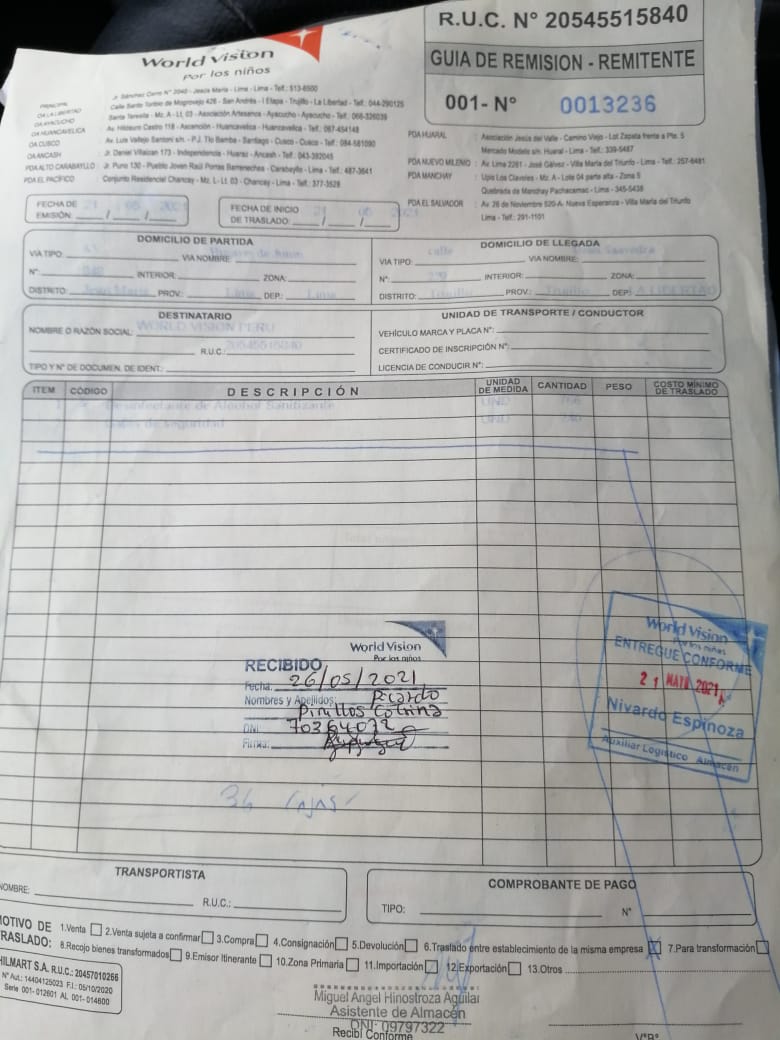 World Vision
Por los niños
R.U.C. N° 20545515840
GUIA DE REMISION - REMITENTE
001- N° 0013236
PRINCIPAL
OA LA LIBERTAD
OA AYACUCHO
OA HUANCAVELICA
OA CUSCO
OA ANCASH
PDA ALTO CARABAYLLO
PDA EL PACÍFICO
Jr. Sánchez Cerro N° 2040 - Jesús María - Lima - Lima - Telf.: 513-6500
Calle Santo Toribio de Mogrovejo 426 - San Andrés - I Etapa - Trujillo - La Libertad - Telf.: 044-290125
Santa Teresita - Mz. A - Lt. 03 - Asociación Artesanos - Ayacucho - Ayacucho - Telf.: 066-326039
Av. Hildauro Castro 118 - Ascención - Huancavelica - Huancavelica - Telf.: 067-454148
Av. Luis Vallejo Santoni s/n. - P.J. Tío Bamba - Santiago - Cusco - Cusco - Telf.: 084-581090
Jr. Daniel Villaizan 173 - Independencia - Huaraz - Ancash - Telf.: 043-392045
Jr. Puno 130 - Pueblo Joven Raúl Porras Barrenechea - Carabayllo - Lima - Telf.: 487-3641
Conjunto Residencial Chancay - Mz. L - Lt. 03 - Chancay - Lima - Telf.: 377-3528
PDA HUARAL : Asociación Jesús del Valle - Camino Viejo - Lot Zapata frente a Pte. 5
Mercado Modelo s/n. Huaral - Lima - Telf.: 339-5487
PDA NUEVO MILENIO : Av. Lima 2261 - José Gálvez - Villa María del Triunfo - Lima - Telf.: 257-6481
PDA MANCHAY : Upis Los Claveles - Mz. A - Lote 04 parte alta - Zona 5
Quebrada de Manchay Pachacamac - Lima - 345-5438
PDA EL SALVADOR : Av. 26 de Noviembre 520-A- Nueva Esperanza - Villa María del Triunfo
Lima - Telf.: 291-1101
FECHA DE EMISIÓN: 21 / 05 / 2021
FECHA DE INICIO DE TRASLADO: 21 / 05 / 2021
DOMICILIO DE PARTIDA
VIA TIPO: VIA NOMBRE:
N°: INTERIOR: ZONA:
DISTRITO: Jesus Maria PROV.: Lima DEP.: Lima
DOMICILIO DE LLEGADA
VIA TIPO: calle VIA NOMBRE: Saavedra
N°: INTERIOR: ZONA:
DISTRITO: Trujillo PROV.: Trujillo DEP.: LA LIBERTAD
DESTINATARIO
NOMBRE O RAZÓN SOCIAL: WORLD VISION PERU
R.U.C.: 20545515840
TIPO Y N° DE DOCUMEN. DE IDENT.:
UNIDAD DE TRANSPORTE / CONDUCTOR
VEHÍCULO MARCA Y PLACA N°:
CERTIFICADO DE INSCRIPCIÓN N°:
LICENCIA DE CONDUCIR N°:
ITEM CÓDIGO DESCRIPCIÓN UNIDAD DE MEDIDA CANTIDAD PESO COSTO MÍNIMO DE TRASLADO
Desinfectante de Alcohol Sanitizante UND
de seguridad UND 240
World Vision
Por los niños
RECIBIDO
Fecha: 26/05/2021
Nombres y Apellidos: Ricardo
Pinillos Cotrina
DNI: 70364072
Firma:
World Vision
Por los niños
ENTREGUE CONFORME
21 MAYO 2021
Nivardo Espinoza
Auxiliar Logístico Almacén
36 cajas
TRANSPORTISTA
NOMBRE: R.U.C.:
COMPROBANTE DE PAGO
TIPO: N°
MOTIVO DE TRASLADO:
1.Venta 2.Venta sujeta a confirmar 3.Compra 4.Consignación 5.Devolución 6.Traslado entre establecimiento de la misma empresa X 7.Para transformación
8.Recojo bienes transformados 9.Emisor Itinerante 10.Zona Primaria 11.Importación 12.Exportación 13.Otros
HILMART S.A. R.U.C.: 20457010266
N° Aut.: 14404125023 F.I.: 05/10/2020
Serie 001- 012601 AL 001- 014600
Miguel Angel Hinostroza Aguilar
Asistente de Almacén
DNI: 09797322
Recibí Conforme
V°B°